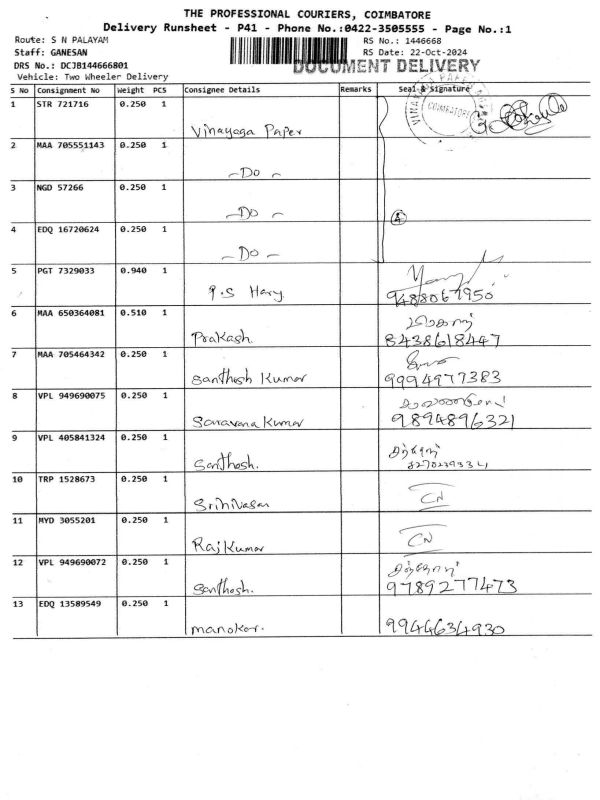 THE PROFESSIONAL COURIERS, COIMBATORE
Delivery Runsheet - P41 - Phone No.:0422-3505555 - Page No.:1
Route: S N PALAYAM RS No.: 1446668
Staff: GANESAN RS Date: 22-Oct-2024
DRS No.: DCJB144666801 DOCUMENT DELIVERY
Vehicle: Two Wheeler Delivery
S No Consignment No Weight PCS Consignee Details Remarks Seal & Signature
1 STR 721716 0.250 1 Vinayaga Paper COIMBATORE
2 MAA 705551143 0.250 1 - Do -
3 NGD 57266 0.250 1 - Do - 4
4 EDQ 16720624 0.250 1 - Do -
5 PGT 7329033 0.940 1 P.S Hary 9488067950
6 MAA 650364081 0.510 1 Prakash. 8438618447
7 MAA 705464342 0.250 1 Santhosh Kumar 9994977383
8 VPL 949690075 0.250 1 Saravana Kumar 9894896321
9 VPL 405841324 0.250 1 Santhosh.
10 TRP 1528673 0.250 1 Srinivasan CN
11 MYD 3055201 0.250 1 Rajkumar CN
12 VPL 949690072 0.250 1 Santhosh. 9789277473
13 EDQ 13589549 0.250 1 manokar. 9944634930